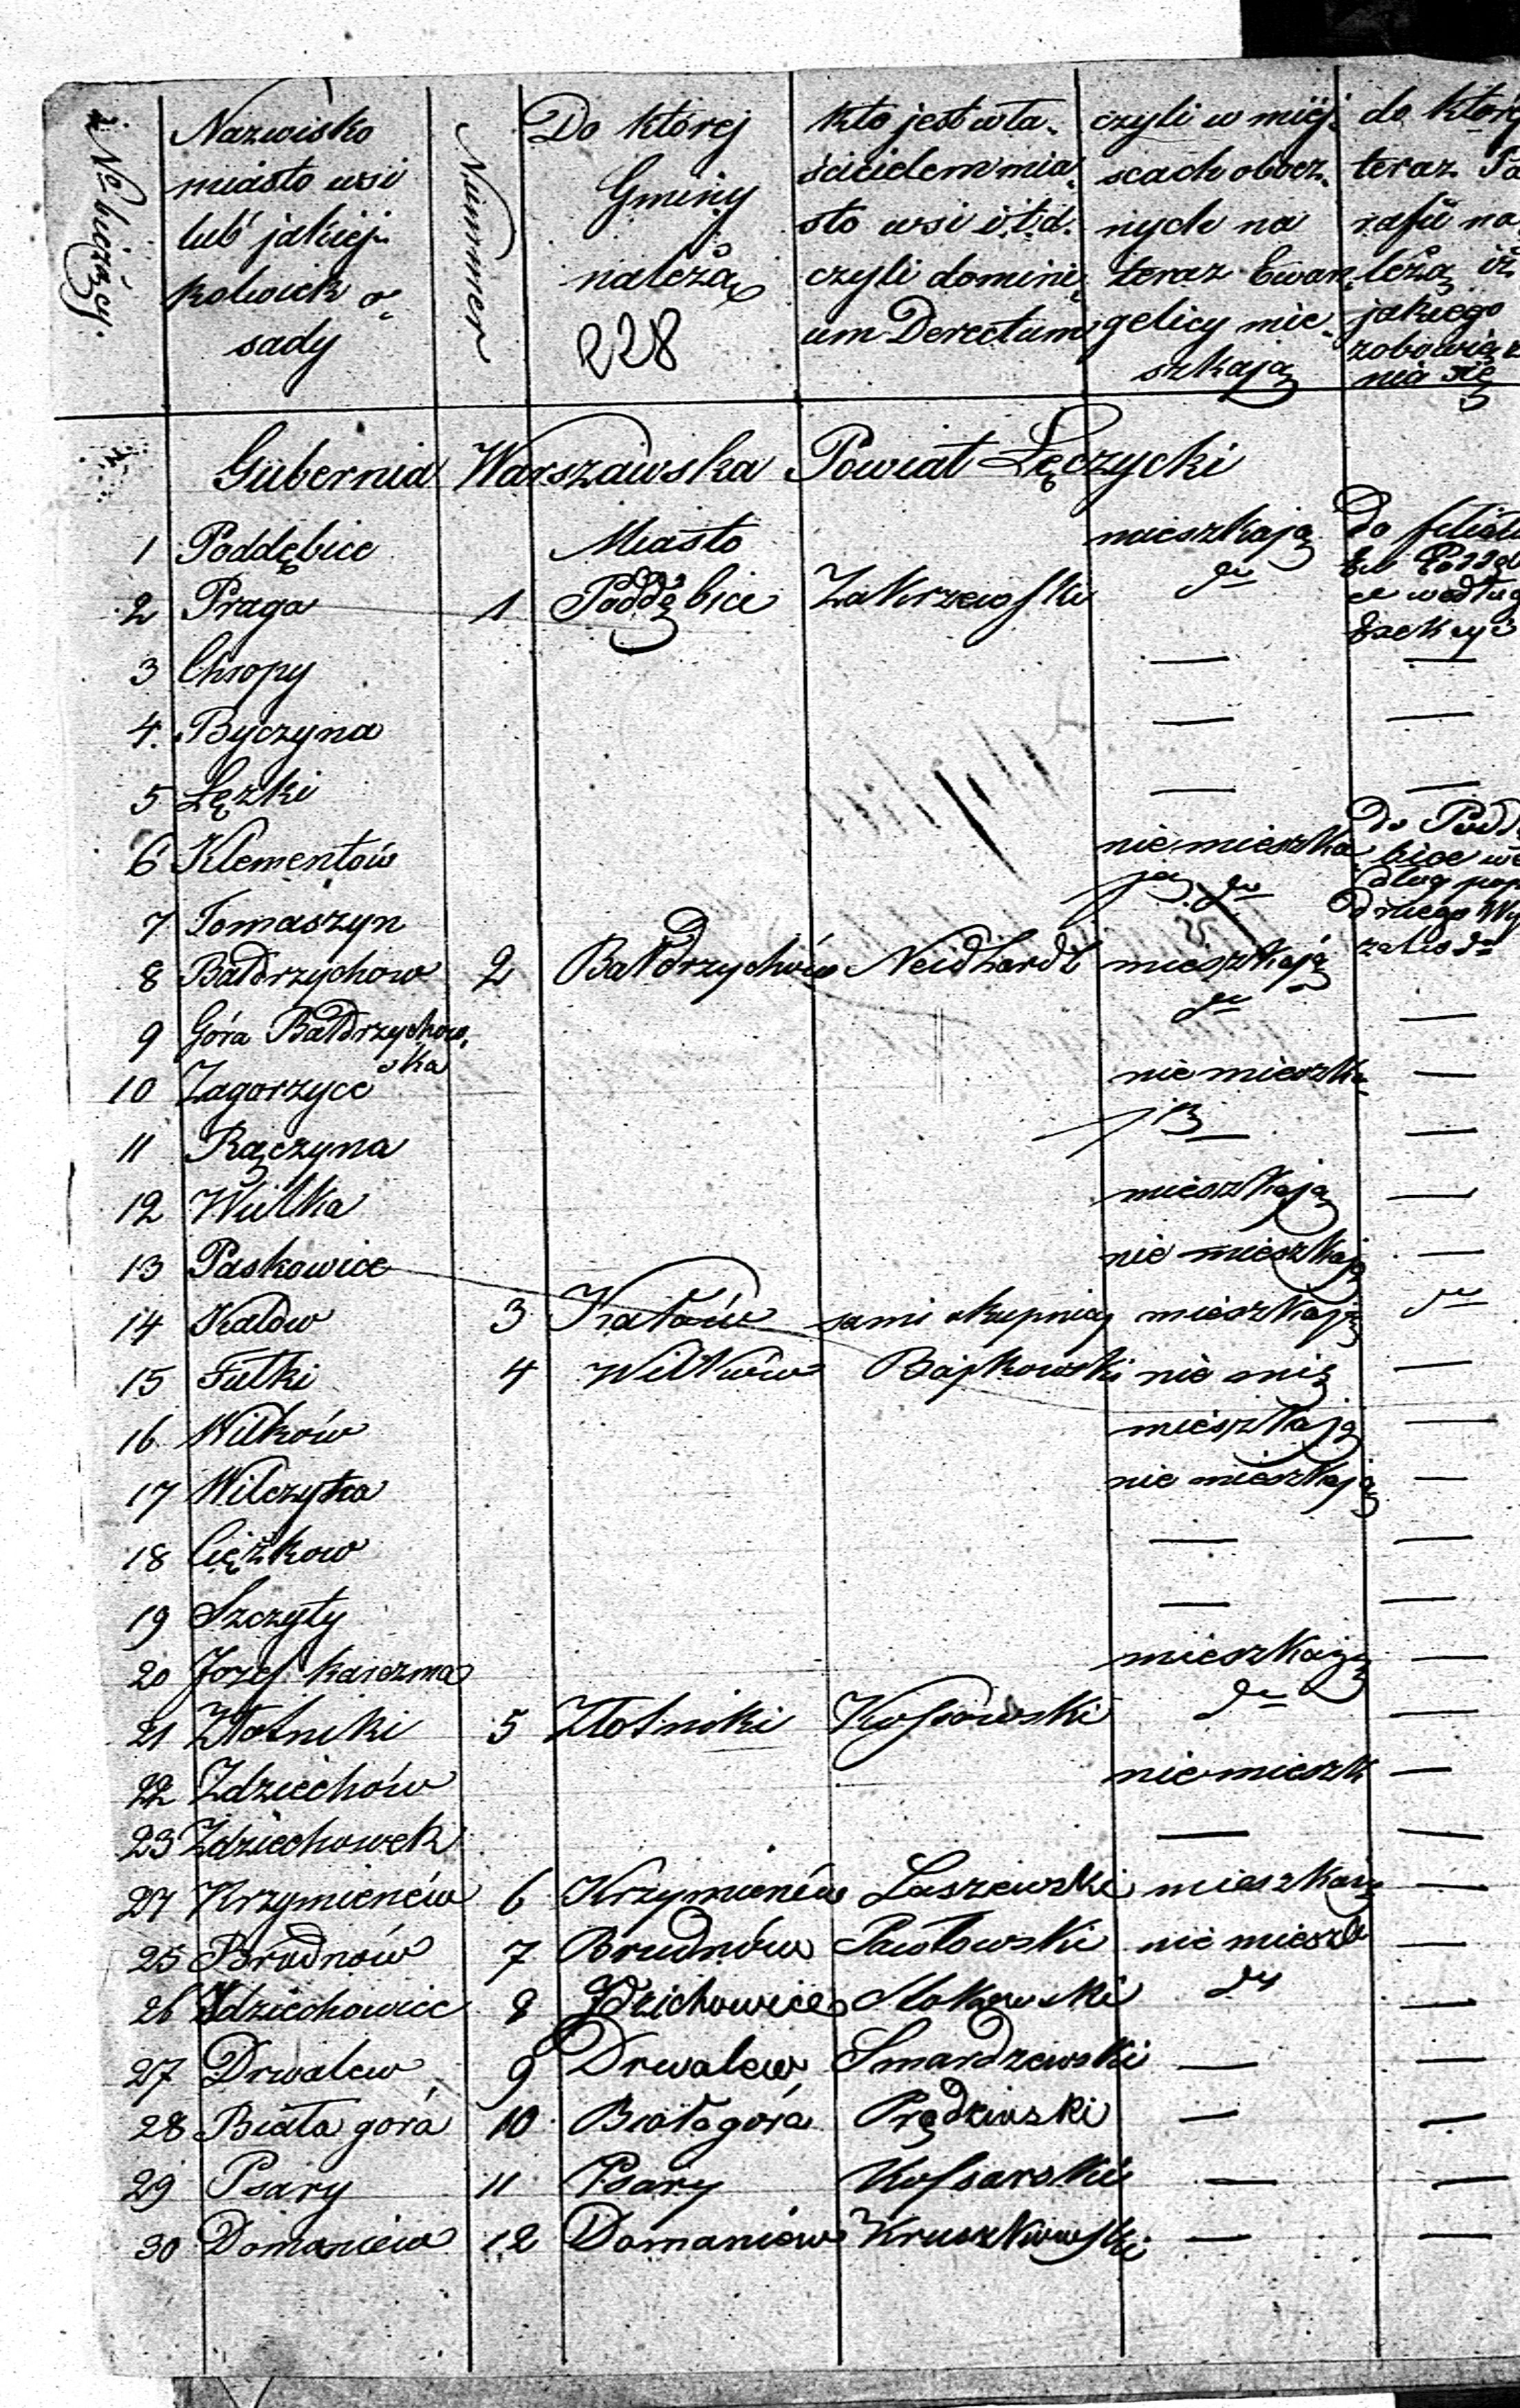 No bieżący.
Nazwisko miasto wsi lub jakiej- kolwiek o- sady
Nummer
Do której Gminy należą
228
kto jest wła- ścicielem mia- sto wsi i.t.d. czyli domini- um Derectum
czyli w miej- scach obocz- nych na teraz Ewan- gelicy mie- szkają
do któréj teraz Pa- rafii na- leżą iż jakiego zobowiąz nia się
Gubernia Warszawska Powiat Łęczycki
1 Poddębice Miasto mieszkają Do filiału
2 Praga 1 Poddębice Zakrzewski do Ew Poddęb ce według Erekcyi
3 Chropy — —
4. Byczyna — —
5 Łęzki — —
6 Klementów nie mieszka ją Do Poddę bice we dług pop
7 Tomaszyn do drugiego Wy
8 Bałdrzychow 2 Bałdrzychów Neidhardt mieszkają do
9 Góra Bałdrzychow- ska do —
10 Zagorzyce nie mieszka ją —
11 Rączyna — —
12 Wulka mieszkają —
13 Paskowice nie mieszkają —
14 Kałów 3 Kałów sami okupnicy mieszkają do
15 Fułki 4 Wilków Bajkowski nie mie —
16 Wilków mieszkają —
17 Wilczyca nie mieszkają —
18 Ciężkow — —
19 Szczyty — —
20 Jozef karczma mieszkają —
21 Złotniki 5 Złotniki Kossowski do —
22 Zdziechów nie mieszk —
23 Zdziechowek — —
24 Krzymienów 6 Krzymienów Laszewski mieszkają —
25 Brudnów 7 Brudnów Pawłowski nie mieszk —
26 Idziechowice 8 Idzichowice Mokowski do —
27 Drwalew 9 Drwalew Smardzewski — —
28 Biała gora 10 Białagóra Prądzinski — —
29 Psary 11 Psary Kossarski — —
30 Domaniew 12 Domaniew Kruszkowski — —